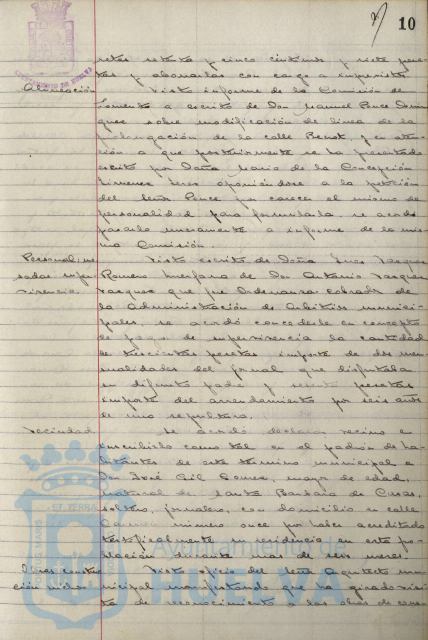 10
setas setenta y cinco céntimos y siete pese-
tas y abonarlas con cargo a imprevistos
Alineación Visto informe de la Comisión de
Fomento a escrito de Don Manuel Ponce
sobre modificación de linea de la
prolongación de la calle y en aten-
ción a que posteriormente se ha presentado
escrito por Doña Maria de la Concepción
oponiendose a la petición
del Señor Ponce por carecer el mismo de
personalidad para formularla, se acordó
pasarlo nuevamente a informe de la mis-
ma Comisión.
Visto escrito de Doña Vazquez
Romero huerfana de Don Antonio Vazquez
Vazquez que fue Ordenanza Cobrador de
la Administración de Arbitrios munici-
pales, se acordó concederle en concepto
de paga de supervivencia la cantidad
de trescientas pesetas importe de dos men-
sualidades del jornal que disfrutaba
su difunto padre y pesetas
importe del arrendamiento por seis años
de una sepultura.
Vecindad Se acordó declarar vecino e
inscribirlo como tal en el padrón de ha-
bitantes de este termino municipal a
Don José Gil Gomez, mayor de edad,
natural de Santa Barbara de Casas,
soltero, jornalero, con domicilio en calle
numero once por haber acreditado
testificalmente su residencia en esta po-
blación durante mas de seis meses.
Visto oficio del Señor Arquitecto mu-
nicipal manifestando que ha girado visi-
ta de reconocimiento a las obras de cons-
Ayuntamiento de
HUELVA